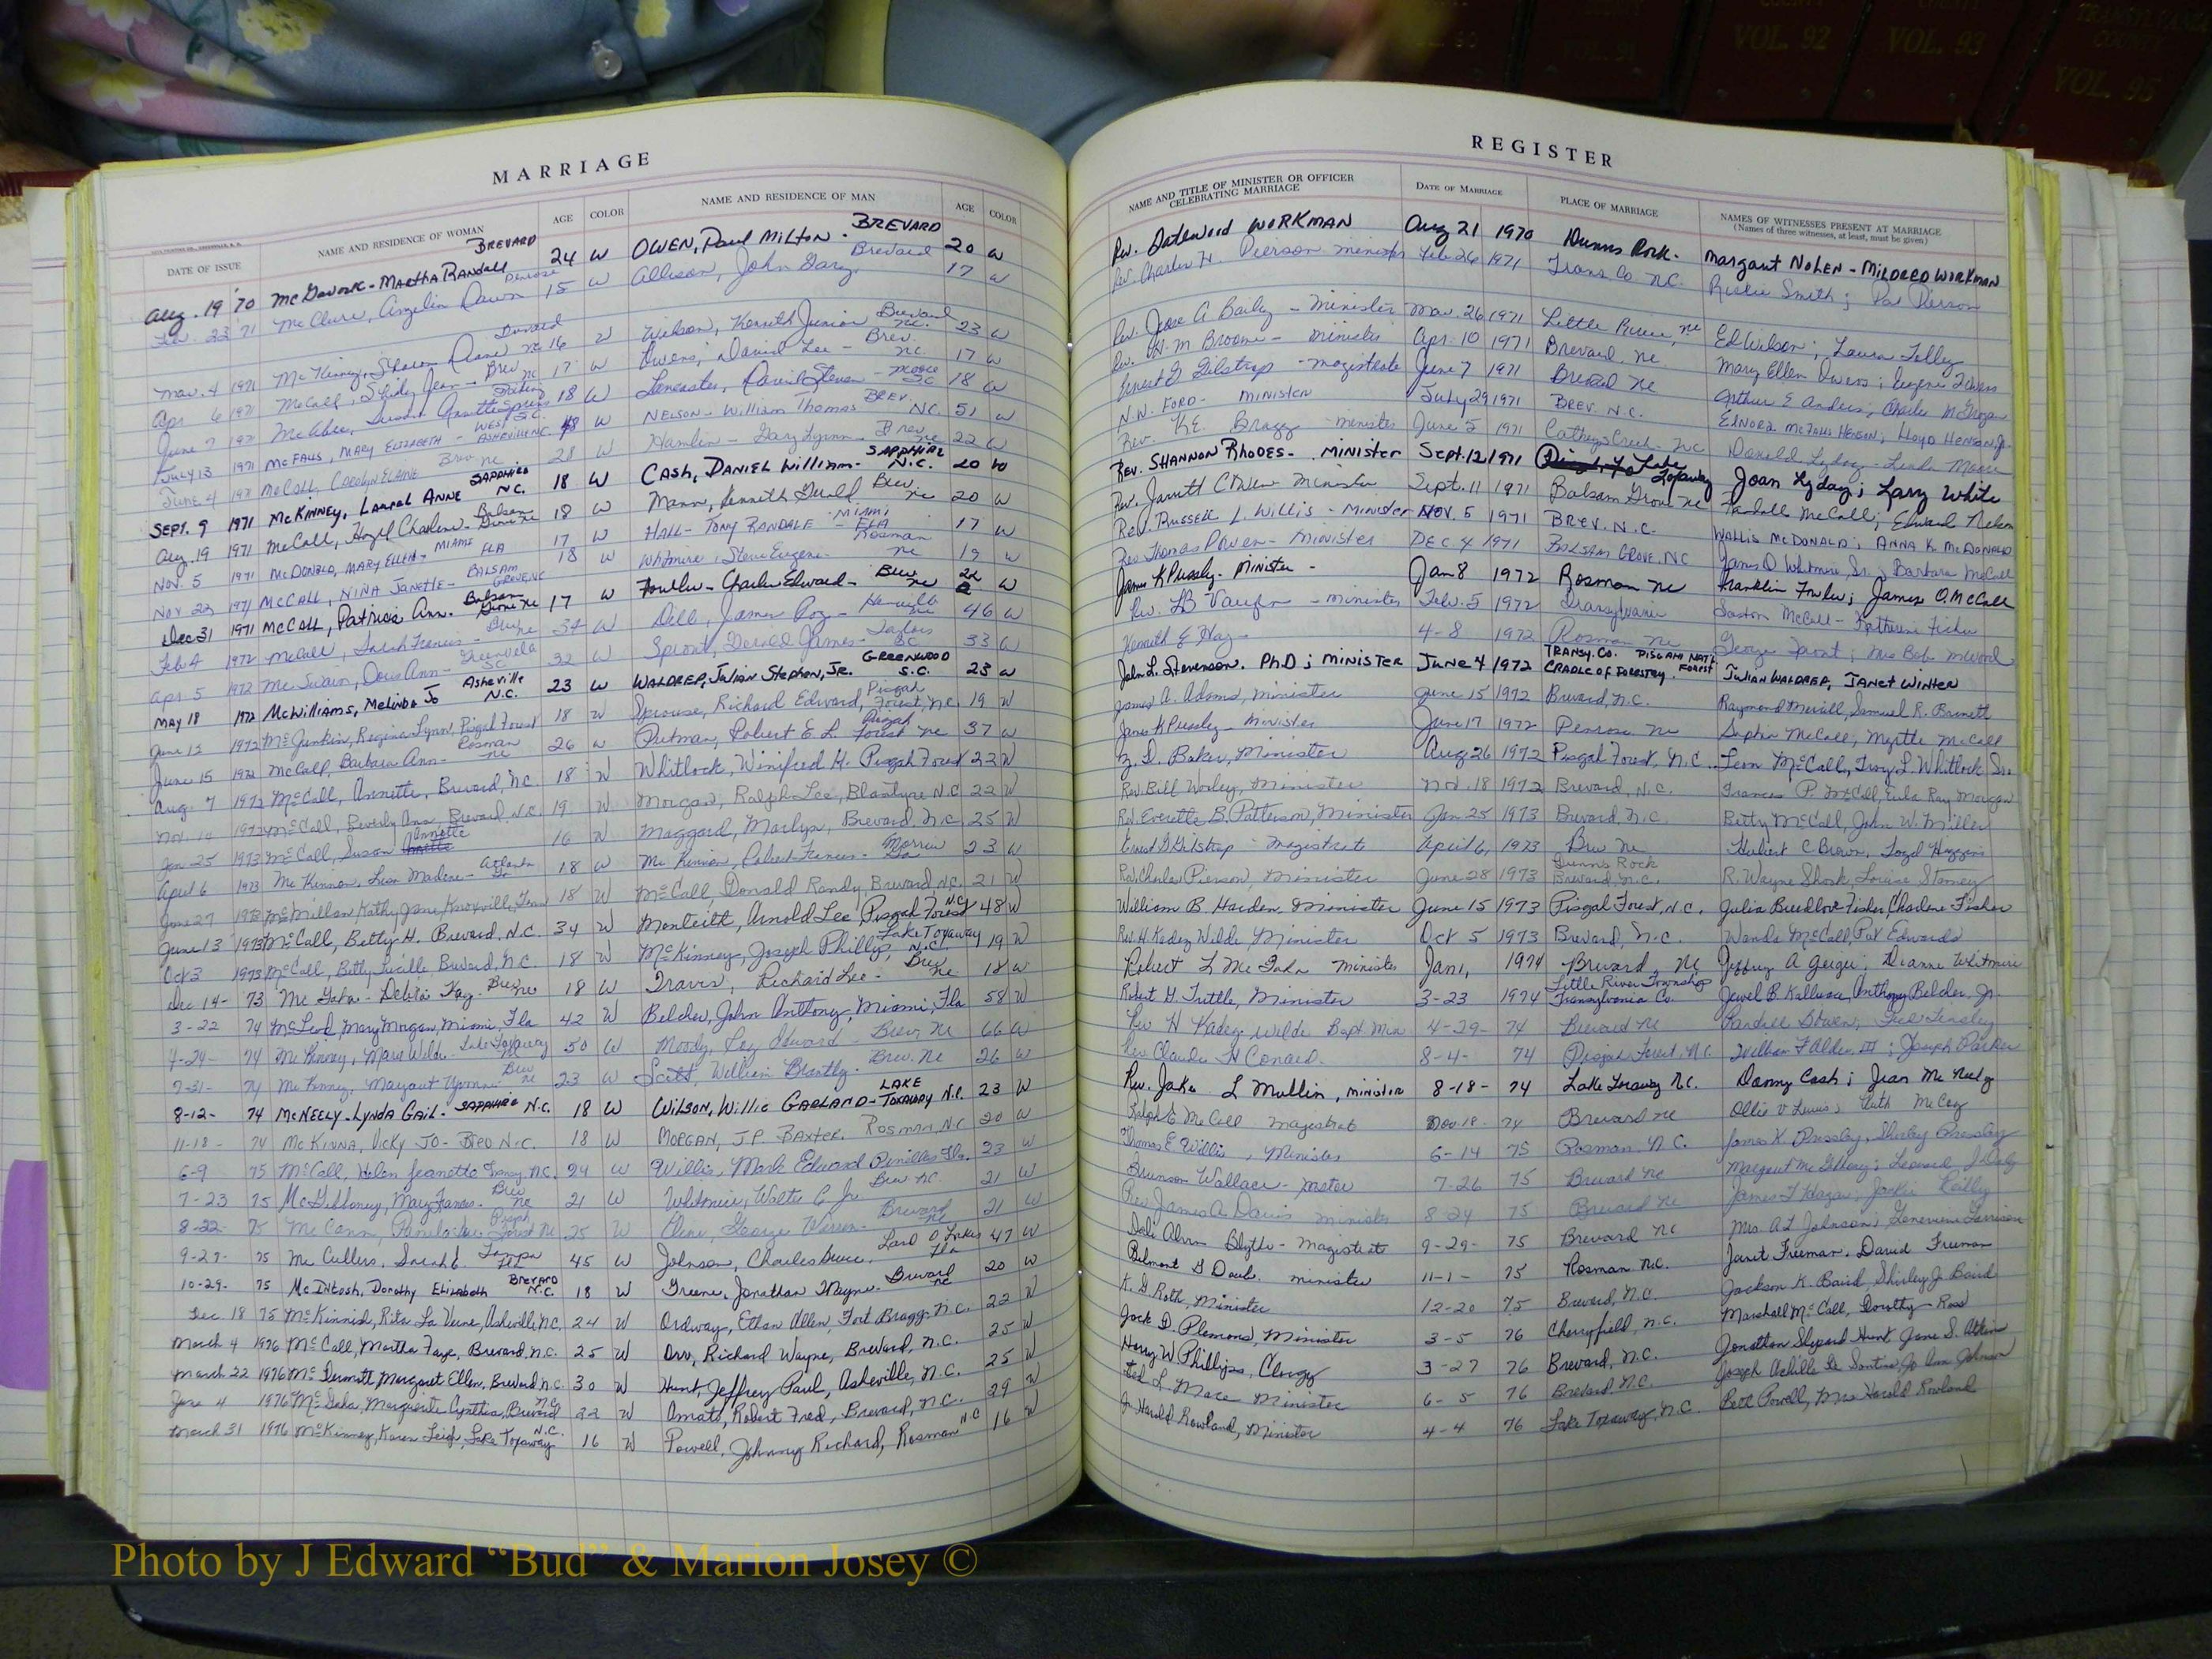 VOL. 92
VOL. 93
VOL. 95
MARRIAGE
DATE OF ISSUE NAME AND RESIDENCE OF WOMAN AGE COLOR NAME AND RESIDENCE OF MAN AGE COLOR
Aug. 19 '70 Martha Randall BREVARD 24 W OWEN, Paul Milton - BREVARD 20 W
McClure, Angelia Dawn 15 W Allison, John Gary Brevard 17 W
Mar. 4 1971 McKinney, Sharon Diane 16 W Wilson, Kenneth Junior Brevard NC. 23 W
Apr 6 1971 McCall, Shirley Jean - Brev NC 17 W Owens, David Lee - Brev. NC. 17 W
June 7 1971 18 W Lancaster, David Steven - SC 18 W
July 13 1971 McFalls, Mary Elizabeth - West Asheville NC. 48 W NELSON - William Thomas BREV. NC. 51 W
June 4 1971 McCall, Carolyn Elaine Brev. NC 21 W Hamlin - Gary Lynn - Brev. NC 22 W
SEPT. 9 1971 McKINNEY, Laural ANNE SAPPHIRE N.C. 18 W CASH, DANIEL William - SAPPHIRE N.C. 20 W
Aug. 19 1971 McCall, Hazel Charlene - Balsam Grove NC 18 W Mann, Kenneth Gerald Brev. NC 20 W
Nov. 5 1971 McDONALD, MARY ELLEN - MIAMI FLA 17 W HALL - TONY RANDALE - MIAMI FLA 17 W
Nov 23 1971 McCALL, NINA JANETTE - BALSAM GROVE, NC 18 W Whitmire, Steve Eugene - Rosman NC 19 W
Dec 31 1971 McCall, Patricia Ann. Balsam Grove NC 17 W Fowler - Charles Edward - Brev NC 22 W
Feb 4 1972 McCall, Sarah Frances - 34 W Dill, James Roy - 46 W
Apr. 5 1972 McSwain, Doris Ann - Greenville SC 32 W Sprout, Gerald James - Taylors SC 33 W
MAY 18 1972 McWilliams, Melinda Jo Asheville N.C. 23 W WALDREP, Julian Stephen, JR. GREENWOOD S.C. 23 W
June 12 1972 McJunkin, Regina Lynn, Pisgah Forest 18 W Sprouse, Richard Edward, Pisgah Forest, N.C. 19 W
June 15 1972 McCall, Barbara Ann - Rosman NC 26 W Putman, Robert E. L. Pisgah Forest NC 37 W
Aug. 7 1972 McCall, Annette, Brevard, N.C. 18 W Whitlock, Winifred H. Pisgah Forest 22 W
Nov. 1972 McCall, Beverly Ann, Brevard, N.C. 19 W Morgan, Ralph Lee, Blantyre N.C. 22 W
Jan 25 1973 McCall, Susan Annette 16 W Maggard, Marlyn, Brevard, N.C. 25 W
April 6 1973 McKinnon, Lisa Madene - Atlanta Ga 18 W McKinnon, Robert Francis - Morrow Ga 23 W
June 27 1973 McMillan, Kathy Jane, Knoxville, Tenn 18 W McCall, Donald Randy, Brevard, N.C. 21 W
June 13 1973 McCall, Betty H. Brevard, N.C. 34 W Monteith, Arnold Lee Pisgah Forest N.C. 48 W
Oct 3 1973 McCall, Betty Lucille, Brevard, N.C. 18 W McKinney, Joseph Phillip, Lake Toxaway N.C. 19 W
Dec 14 - 73 McGaha - Debra Kay - Brev NC 18 W Travis, Richard Lee - Brev NC 18 W
3-22 74 McLeod, Mary Morgan, Miami, Fla 42 W Belcher, John Anthony, Miami, Fla 58 W
4-24- 74 McKinney, Marie Wilde - Lake Toxaway NC 50 W Moody, Roy Edward - Brev, NC 66 W
7-31- 74 McKinney, Margaret Brev NC 23 W Scott, William Brantly. Brev. NC 26 W
8-12- 74 McNEELY - LYNDA GAIL - SAPPHIRE N.C. 18 W WILSON, Willie GARLAND - LAKE TOXAWAY N.C. 23 W
11-18- 74 McKINNA, Vicky JO - BREV N.C. 18 W MORGAN, J.P. BAXTER. ROSMAN, N.C. 20 W
6-9 75 McCall, Helen Jeanette N.C. 24 W Willis, Mark Edward Pinellas Fla. 23 W
7-23 75 McGibboney, Mary Frances - Brev NC 21 W Whitmire, Walter C. Jr. Brev NC. 21 W
8-22- 75 McCann, Pamela Pisgah Forest NC 25 W Cline, George Warren - Brevard NC 21 W
9-27- 75 McCullers, Sarah E. Tampa Fla 45 W Johnson, Charles Land O Lakes Fla 47 W
10-29- 75 McIntosh, Dorothy Elizabeth BREVARD N.C. 18 W Greene, Jonathan Wayne - Brevard NC 20 W
Dec. 18 75 McKinnish, Rita La Verne, Asheville N.C. 24 W Ordway, Ethan Allen, Fort Bragg, N.C. 22 W
March 4 1976 McCall, Martha Faye, Brevard, N.C. 25 W Orr, Richard Wayne, Brevard, N.C. 25 W
March 22 1976 McDermott, Margaret Ellen, Brevard N.C. 30 W Hunt, Jeffrey Paul, Asheville, N.C. 25 W
June 4 1976 McGaha, Marguerite Cynthia, Brevard N.C. 22 W Amato, Robert Fred, Brevard, N.C. 29 W
March 31 1976 McKinney, Karen Leigh, Lake Toxaway N.C. 16 W Powell, Johnny Richard, Rosman N.C. 16 W
REGISTER
NAME AND TITLE OF MINISTER OR OFFICER CELEBRATING MARRIAGE DATE OF MARRIAGE PLACE OF MARRIAGE NAMES OF WITNESSES PRESENT AT MARRIAGE
(Names of three witnesses, at least, must be given)
Rev. WORKMAN Aug 21 1970 Dunns Rock - Margaret NOLEN - MILDRED WORKMAN
Rev. Charles H. Pierson minister Feb. 26 1971 Trans. Co. N.C. Smith; Pat Pierson
Rev. A Bailey - Minister Mar. 26 1971 Little River, NC Ed Wilson; Laura
Rev. H. M. Broome - minister Apr. 10 1971 Brevard, NC Mary Ellen Owens; Eugene Owens
Ernest G Gilstrap - magistrate June 7 1971 Brevard NC Arthur E Anders; Charles
N.W. FORD - MINISTER July 29 1971 BREV. N.C. ELNORA HENSON; Lloyd HENSON, Jr.
Rev. K.E. Bragg - minister June 5 1971 Catheys Creek - NC Donald Lyday - Linda
REV. SHANNON RHODES - MINISTER Sept. 12 1971 Lake Toxaway Joan Lyday; Lary White
Rev. Jarrett Minister Sept. 11 1971 Balsam Grove NC Randall McCall; Edward Nelson
Rev. RUSSELL L. WILLIS - MINISTER NOV. 5 1971 BREV. N.C. WALLIS McDONALD; ANNA K. McDONALD
Rev Thomas Owen - Minister DEC. 4 1971 BALSAM GROVE, NC James D Whitmire, Sr.; Barbara McCall
James K Pressley - Minister - Jan 8 1972 Rosman NC Franklin Fowler; James O. McCall
Rev. Vaughn - minister Feb. 5 1972 Transylvania Gaston McCall - Katherine Fisher
Kenneth E Hoy - 4-8 1972 Rosman NC George Sprout; Mrs Bob
John L. Stevenson. Ph.D; MINISTER June 4 1972 TRANSY. CO. PISGAH NAT'L FOREST CRADLE OF FORESTRY. JULIAN WALDREP, JANET WINTER
James A. Adams, Minister June 15 1972 Brevard, N.C. Raymond Merrill, Samuel R. Burnett
James K Pressley - Minister June 17 1972 Penrose NC McCall, Myrtle McCall
Z. D. Baker, Minister Aug 26 1972 Pisgah Forest, N.C. Leon McCall, Troy L. Whitlock, Sr.
Rev. Bill Worley, Minister Nov. 18 1972 Brevard, N.C. Frances P. McCall, Eula Ray Morgan
Rev. Everette B. Patterson, Minister Jan. 25 1973 Brevard, N.C. Betty McCall, John W. Miller
Ernest G Gilstrap - magistrate April 6, 1973 Brev NC Hubert C Brown, Loyd
Rev. Charles Pierson, Minister June 28 1973 Dunns Rock Brevard, N.C. R. Wayne Shook, Louise Stamey
William B. Harden, Minister June 15 1973 Pisgah Forest, N.C. Julia Breedlove Fisher, Charlene Fisher
Rev. H. Kadez Wilde Minister Oct 5 1973 Brevard, N.C. Wanda McCall, Pat Edwards
Robert L McGaha minister Jan 1, 1974 Brevard, NC Jeffrey A Geiger; Dianne Whitmire
Robert G. Tuttle, Minister 3-23 1974 Little River Township Transylvania Co. Jewel B. Anthony Belcher, Jr.
Rev H Kadez Wilde Bapt. Min 4-29- 74 Brevard NC
Rev Claude H Conard. 8-4- 74 Pisgah Forest, N.C. William F Alden III; Joseph Parker
Rev. Jake L Mullin, minister 8-18- 74 Lake Toxaway N.C. Danny Cash; Jean McNeely
Ralph E McCall magistrate Nov-18- 74 Brevard NC Ollie V Lewis; Ruth McCoy
Thomas E Willis, Minister 6-14 75 Rosman, N.C. James K. Pressley, Shirley Pressley
Brunson Wallace - pastor 7-26 75 Brevard NC
Rev. James A Davis minister 8-24 75 Brevard NC James
Blythe - Magistrate 9-29- 75 Brevard NC Mrs. A L Johnson; Genevieve Garrison
Belmont G Daub. minister 11-1- 75 Rosman N.C. Janet Freeman, David Freeman
K. G. Roth, Minister 12-20 75 Brevard, N.C. Jackson K. Baird, Shirley J. Baird
Jack D. Plemons, Minister 3-5 76 Cherryfield, N.C. Marshall McCall, Dorothy Ross
Harry W Phillips, Clergy 3-27 76 Brevard, N.C. Jonathan Shepard Hunt, Jane S. Atkin
Ted L Mace Minister 6-5 76 Brevard N.C. Joseph Achille De Santis, Jo Ann Johnson
J. Harold Rowland, Minister 4-4 76 Lake Toxaway, N.C. Beck Powell, Mrs Harold Rowland
Photo by J Edward “Bud” & Marion Josey ©